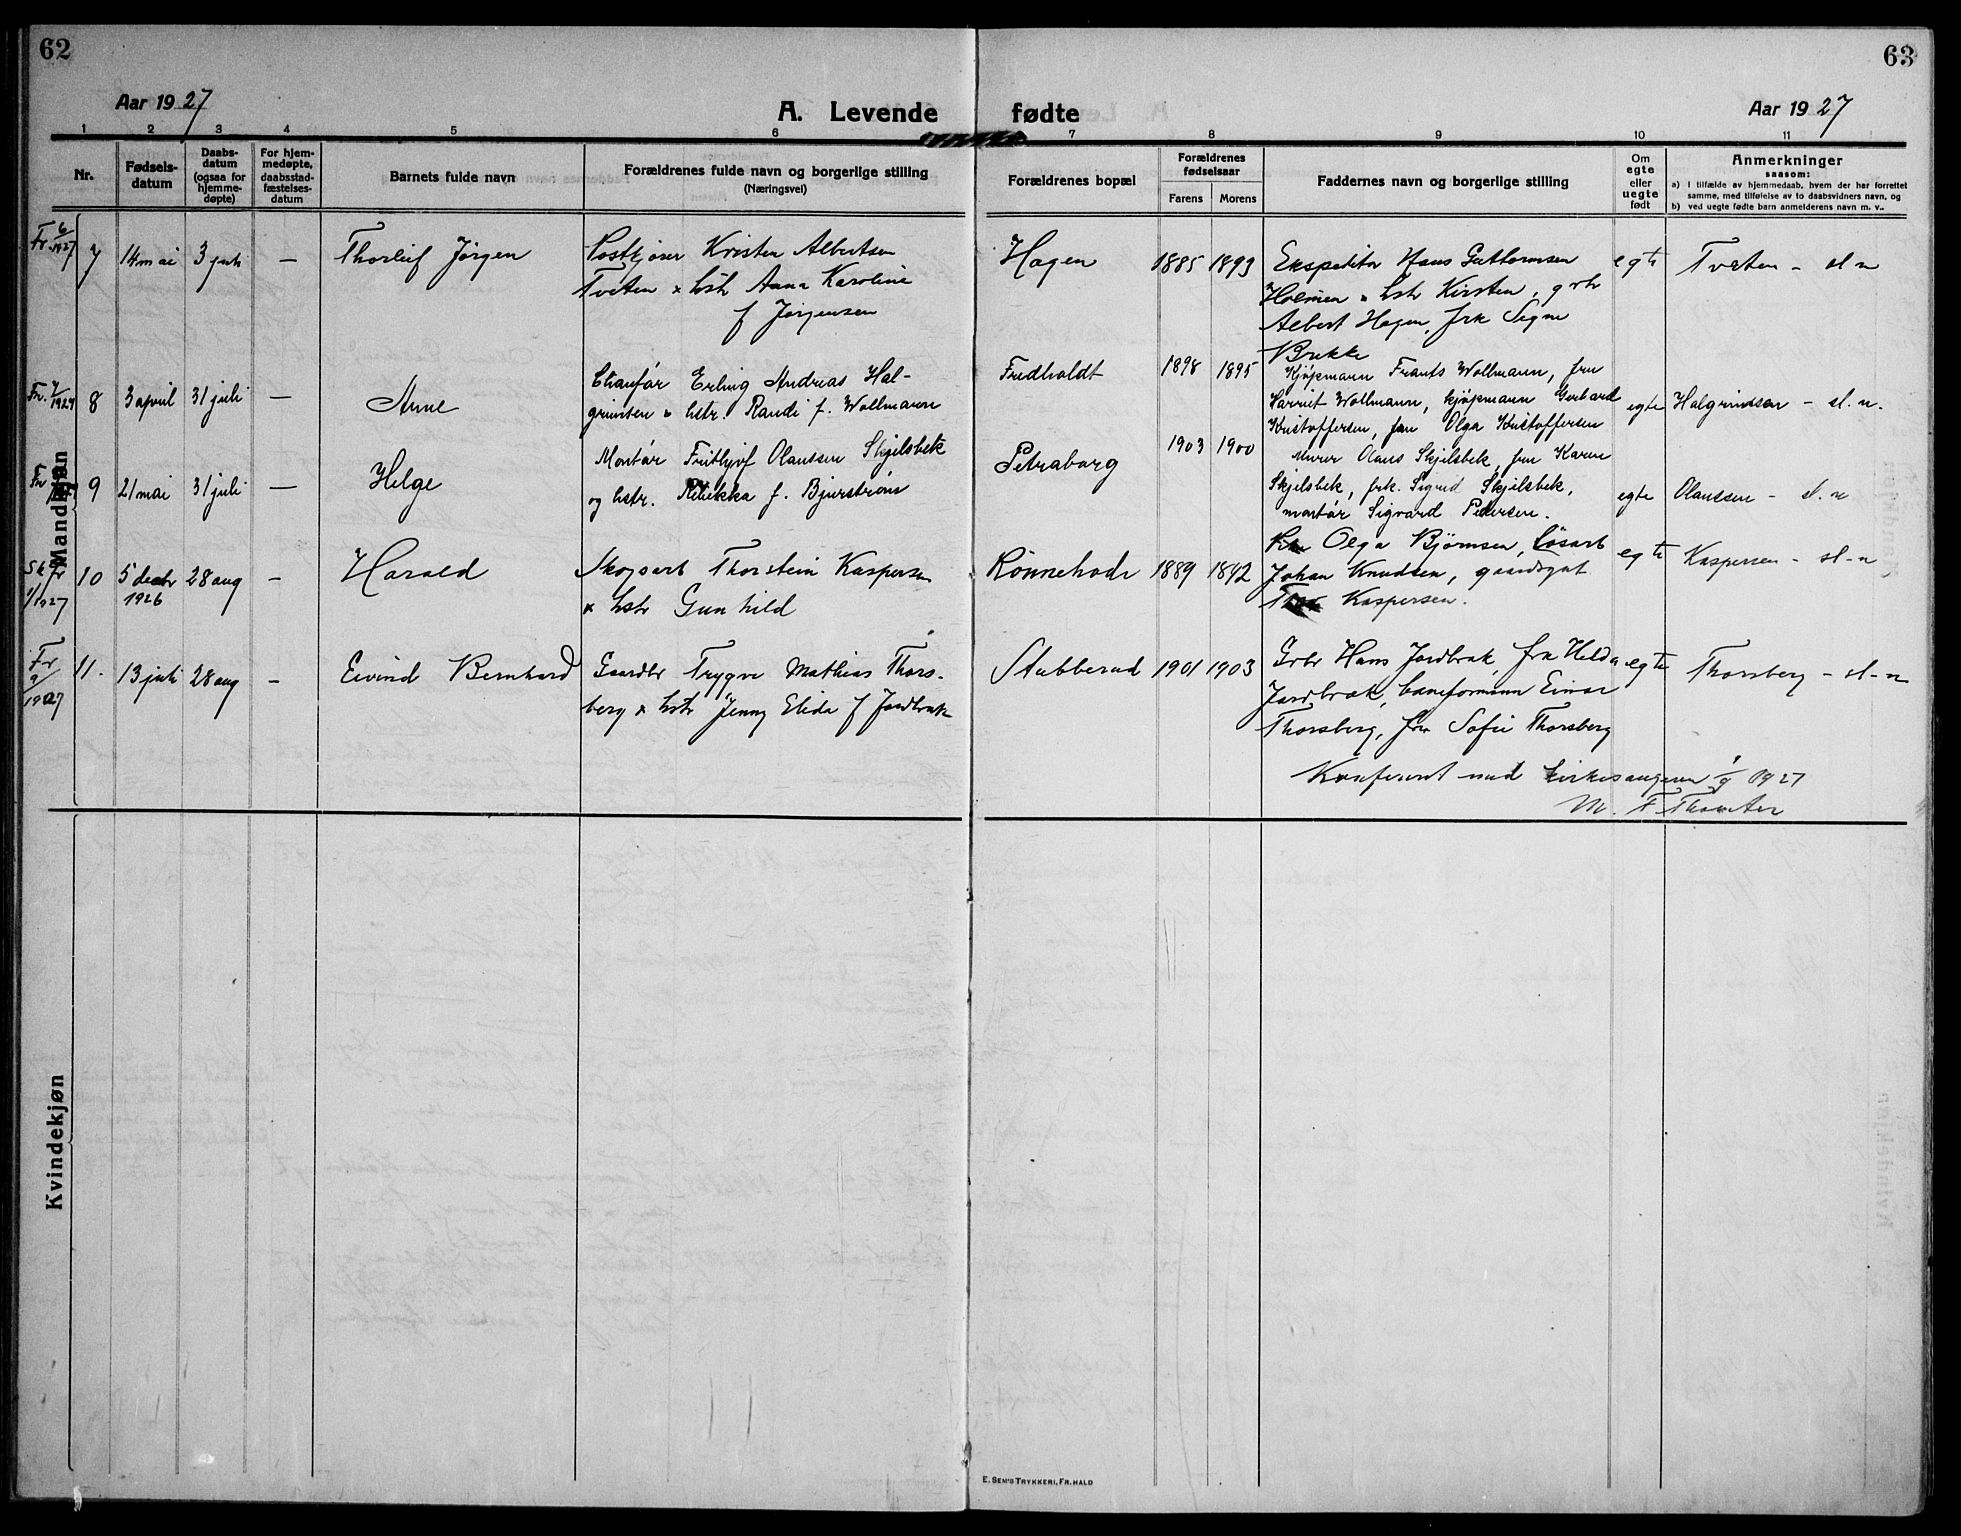 62
63
Aar 1927
A. Levende fødte
Aar 1927
1 2 3 4 5 6 7 8 9 10 11
Nr.
Fødsels-
datum
Daabs-
datum
(ogsaa for
hjemme-
døpte)
For hjem-
medøpte,
daabsstad-
fæstelses-
datum
Barnets fulde navn
Forældrenes fulde navn og borgerlige stilling
(Næringsvei)
Forældrenes bopæl
Forældrenes
fødselsaar
Farens Morens
Faddernes navn og borgerlige stilling
Om
egte
eller
uegte
født
Anmerkninger
saasom:
a) i tilfælde av hjemmedaab, hvem der har forrettet
samme, med tilføielse av to daabsvidners navn, og
b) ved uegte fødte barn anmelderens navn m. v..
Mandkjøn
Fr. 6/1927
7 14 mai 3 juli — Thorleif Jörgen
Postkjörer Kristen Albertsen
Tveten & hstr Anna Karoline
f Jörgensen
Hagen 1885 1893
Ekspeditör Hans Guttormsen
Holmen & hstr Kirsten, grbr
Albert Hagen, frk Signe
Brekke
egte Tveten - sl. n
Fr. 7/1927
8 3 april 31 juli — Arne
Chaufør Erling Andreas Hal-
grimsen & hstr. Randi f. Wollmann
Fredholdt 1898 1895
Kjøpmann Frants Wollmann, fru
Harriet Wollmann, kjøpmann Gerhard
Kristoffersen, fru Olga Kristoffersen
egte Halgrimsen - sl. n.
Fr.
9 21 mai 31 juli — Helge
Montør Frithjof Olaussen Skjelsbek
og hstr. Rebekka f. Bjurstrøm
Petraborg 1903 1900
Murer Olaus Skjelsbek, fru Karen
Skjelsbek, frk. Sigrud Skjelsbek,
montør Sigvard Pedersen.
egte Olaussen - sl. n
10 5 decbr 28 aug — Harald
1926
Skogsarb Thorstein Kaspersen
& hstr Gunhild
Rönneholdt 1889 1892
Olga Björnsen, løsarb
Johan Knudsen, gaardsgut
Kaspersen.
egte Kaspersen - sl. n
Fr 9/1927
11. 13 juli 28 aug — Eivind Bernhard
Gaardbr Trygve Mathias Thors-
berg & hstr Jenny Elida f Jordbræk
Stubberud 1901 1903
Grbr Hans Jordbræk, fru Helda
Jordbræk, baneformann Einar
Thorsberg, fru Sofie Thorsberg
egte Thorsberg - sl. n
Konferert med kirkesangeren 1/9 1927
M. F. Thomter
Kvindekjøn
E. Sem's Trykkeri, Fr.hald